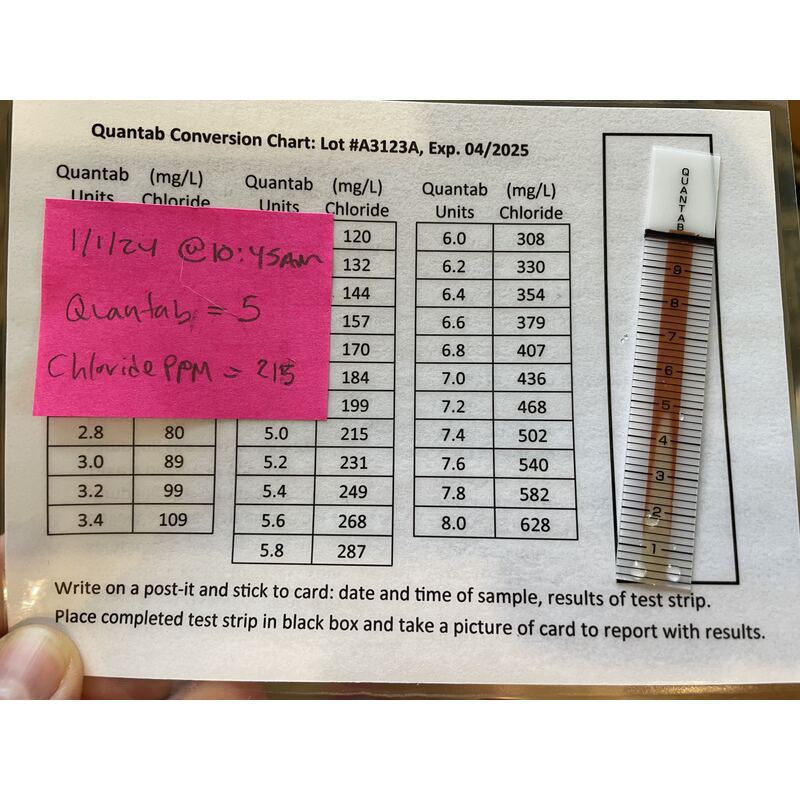 Quantab Conversion Chart: Lot #A3123A, Exp. 04/2025
Quantab (mg/L) Quantab (mg/L) Quantab (mg/L)
Units Chloride Units Chloride Units Chloride
1/1/24 @10:45AM
Quantab = 5
Chloride PPM = 215
120 6.0 308
132 6.2 330
144 6.4 354
157 6.6 379
170 6.8 407
184 7.0 436
199 7.2 468
2.8 80 5.0 215 7.4 502
3.0 89 5.2 231 7.6 540
3.2 99 5.4 249 7.8 582
3.4 109 5.6 268 8.0 628
5.8 287
QUANTAB
9
8
7
6
5
4
3
2
1
Write on a post-it and stick to card: date and time of sample, results of test strip.
Place completed test strip in black box and take a picture of card to report with results.